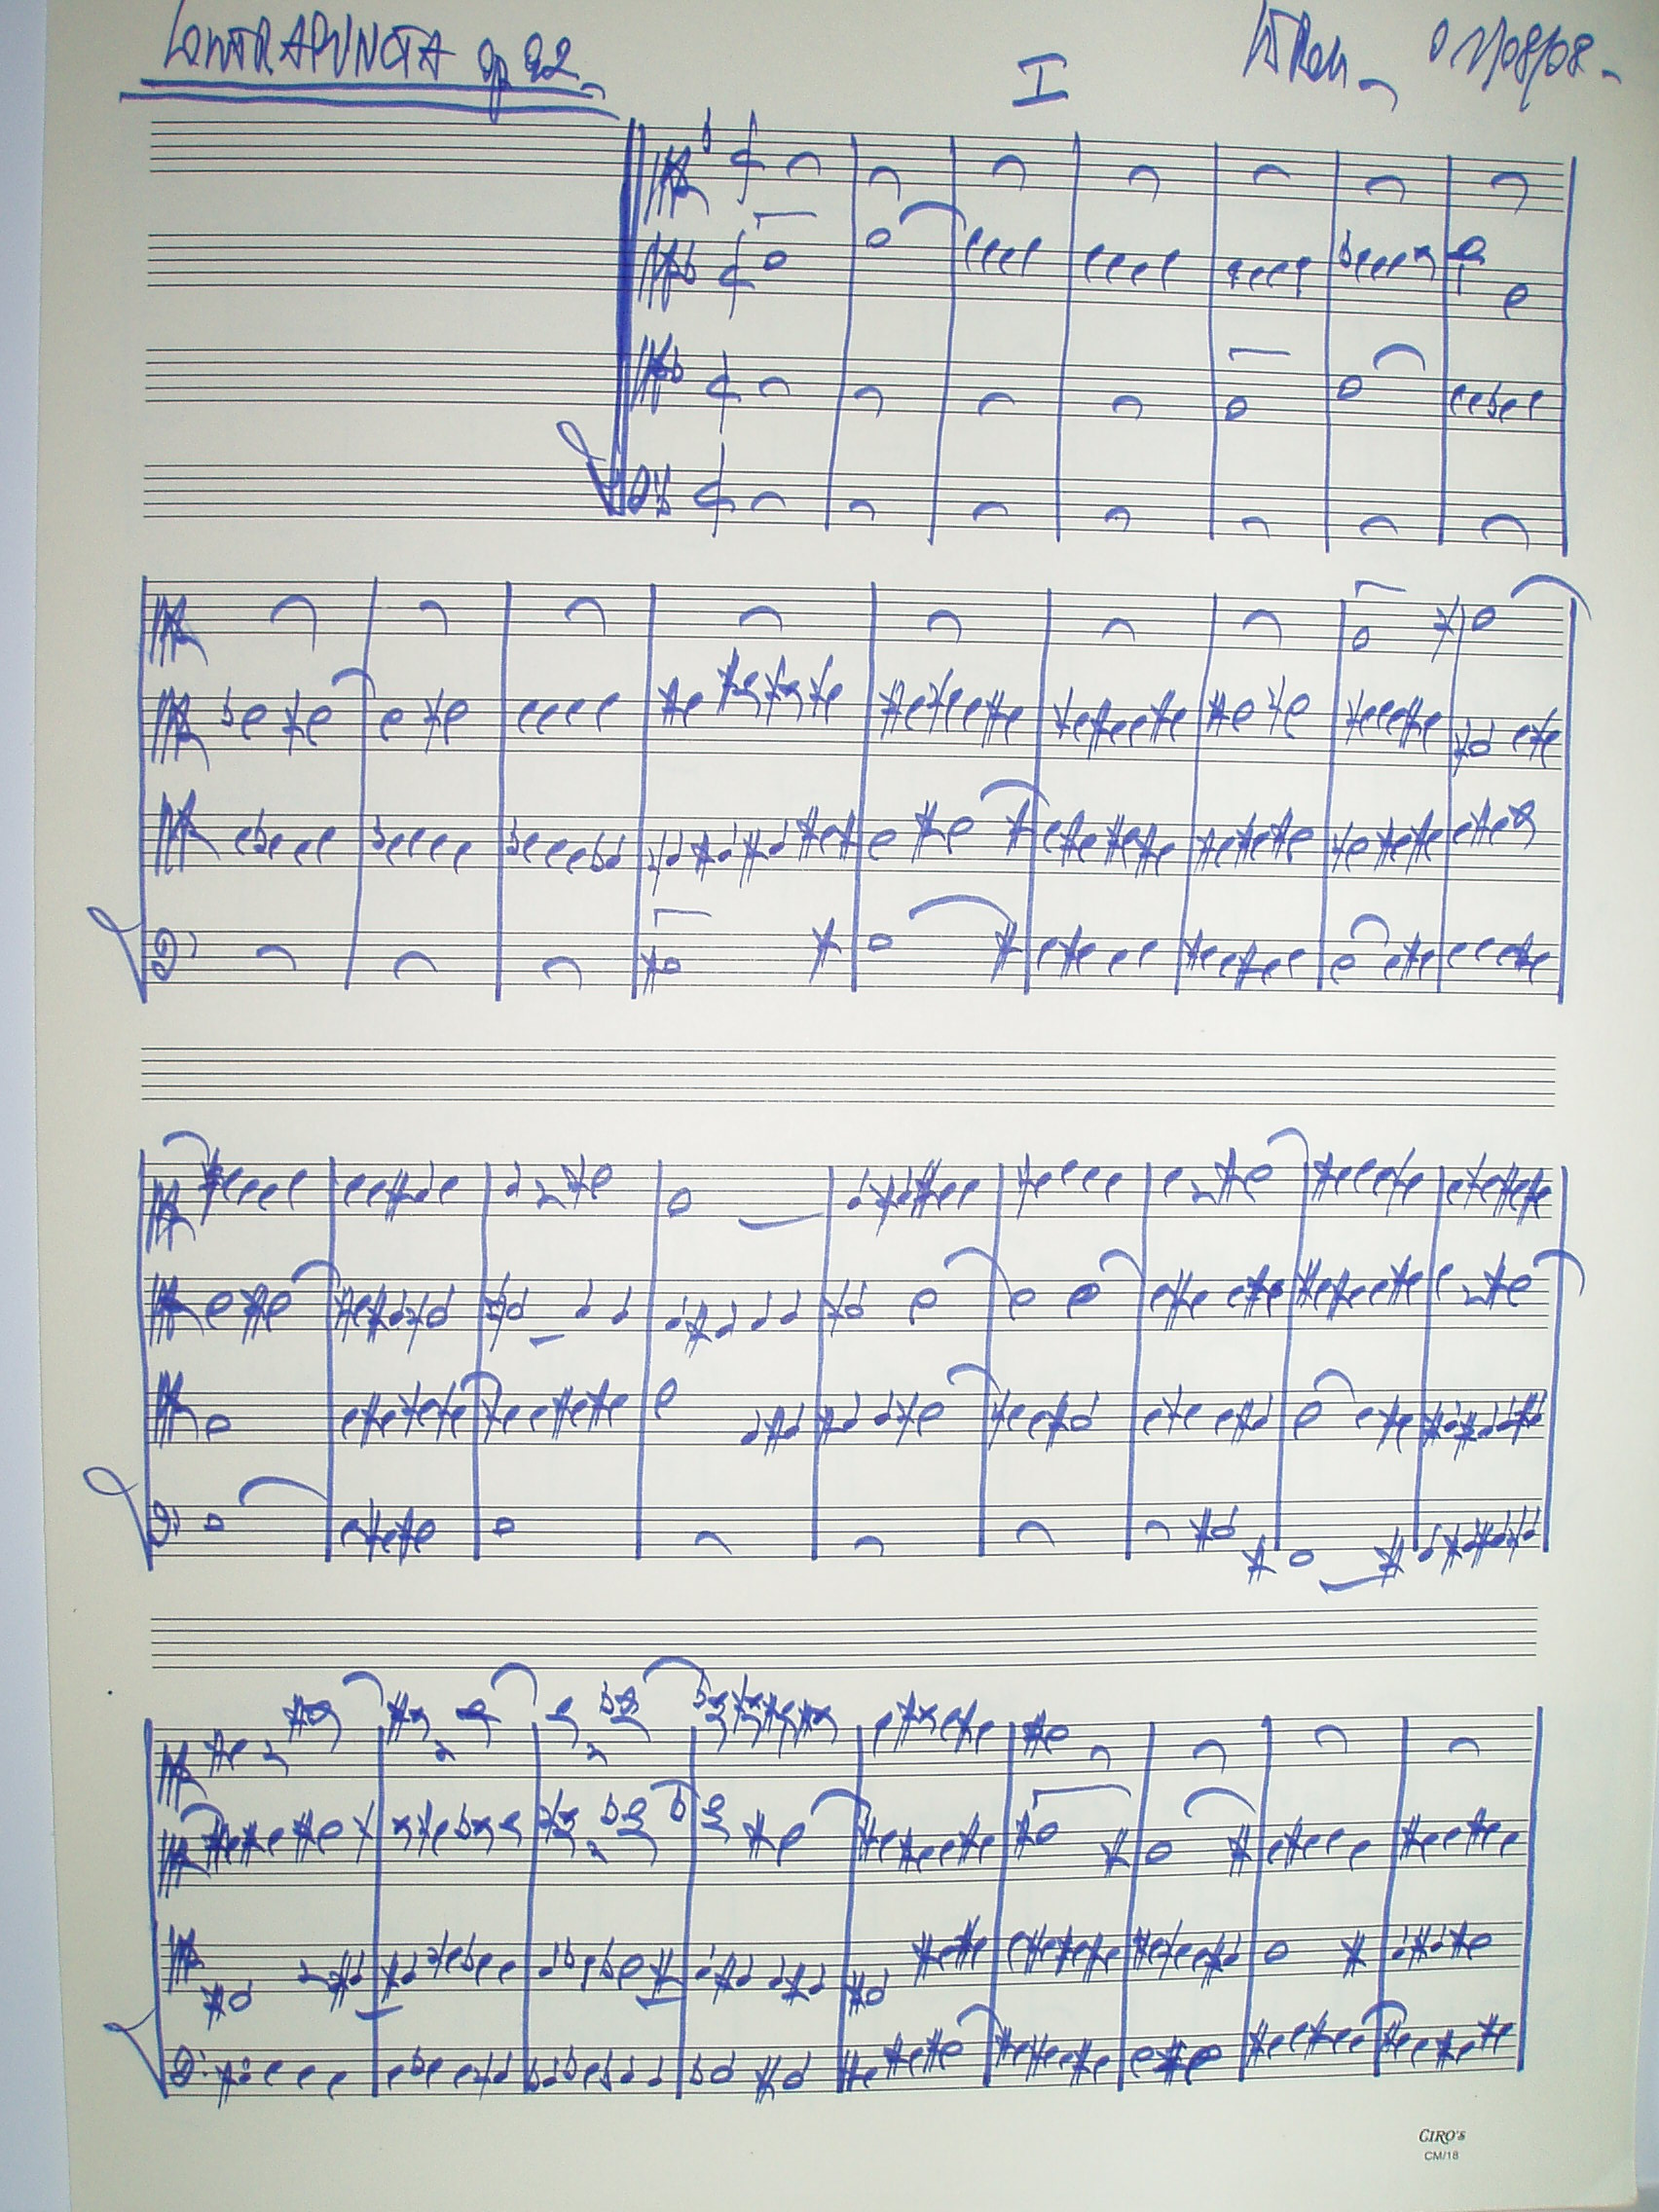 CONTRAPUNCTA op 92
I
01/08/08
CIRO's
CM/18